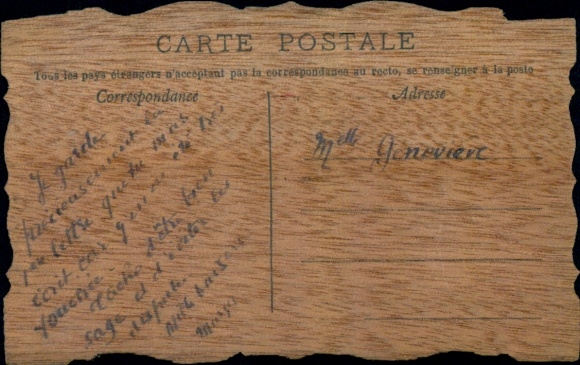 CARTE POSTALE
Tous les pays étrangers n'acceptant pas la correspondance au recto, se renseigner à la poste
Correspondance
Je garde
précieusement ta
lettre que tu m'as
écrit car j'en ai été très
touchée
Tache d'être bien
sage et d'
Mille baisers
Adresse
Melle Genevieve